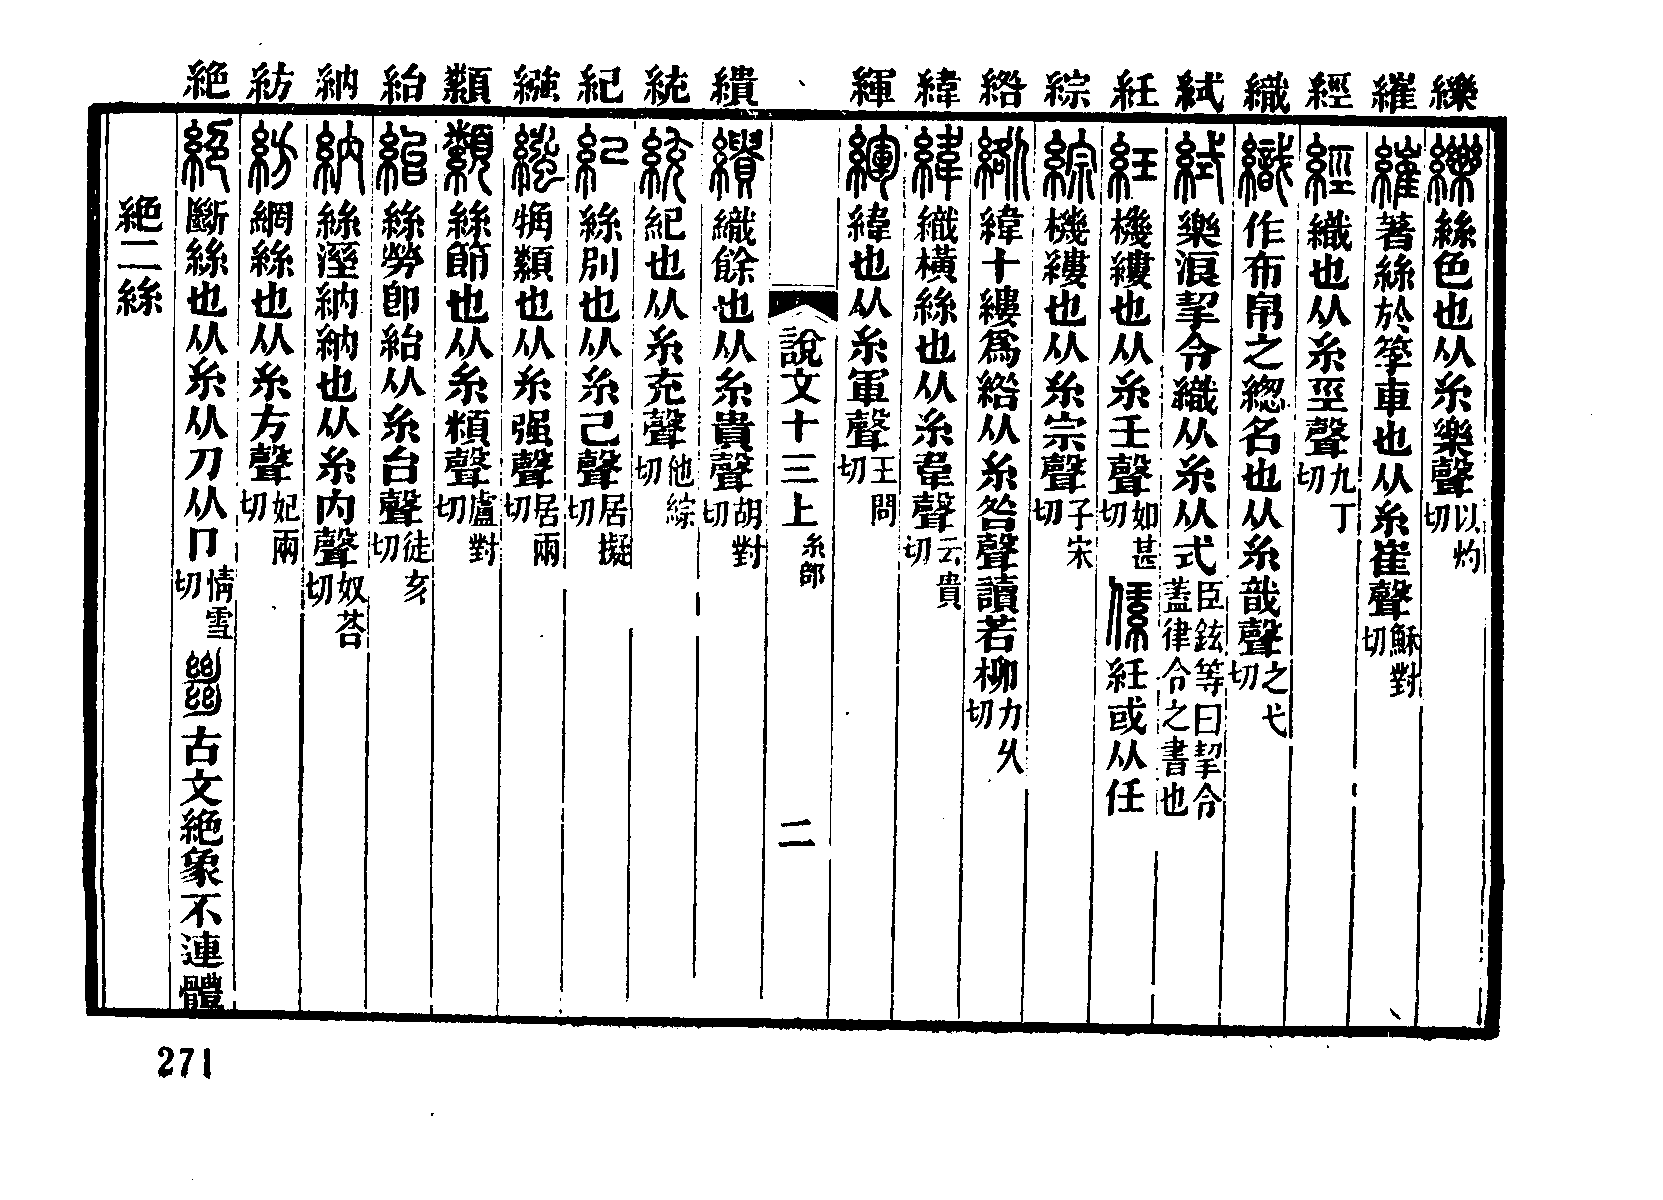 纅 繀 經 織 𥿮 紝 綜 綹 緯 緷 繢 統 紀 繈 纇 紿 納 紡 絶
纅絲色也从糸樂聲以灼切
繀著絲於筟車也从糸崔聲穌對切
經織也从糸巠聲九丁切
織作布帛之緫名也从糸戠聲之弋切
𥿮樂浪挈令織从糸从式臣鉉等曰挈令蓋律令之書也
紝機縷也从糸壬聲如甚切 𦀰紝或从任
綜機縷也从糸宗聲子宋切
綹緯十縷爲綹从糸咎聲讀若柳力久切
緯織橫絲也从糸韋聲云貴切
緷緯也从糸軍聲王問切
說文十三上 糸部 二
繢織餘也从糸貴聲胡對切
統紀也从糸充聲他綜切
紀絲別也从糸己聲居擬切
繈觕纇也从糸强聲居兩切
纇絲節也从糸頪聲盧對切
紿絲勞卽紿从糸台聲徒亥切
納絲溼納納也从糸內聲奴荅切
紡網絲也从糸方聲妃兩切
絶斷絲也从糸从刀从卩情雪切 𢇍古文絶象不連體
絶二絲
271